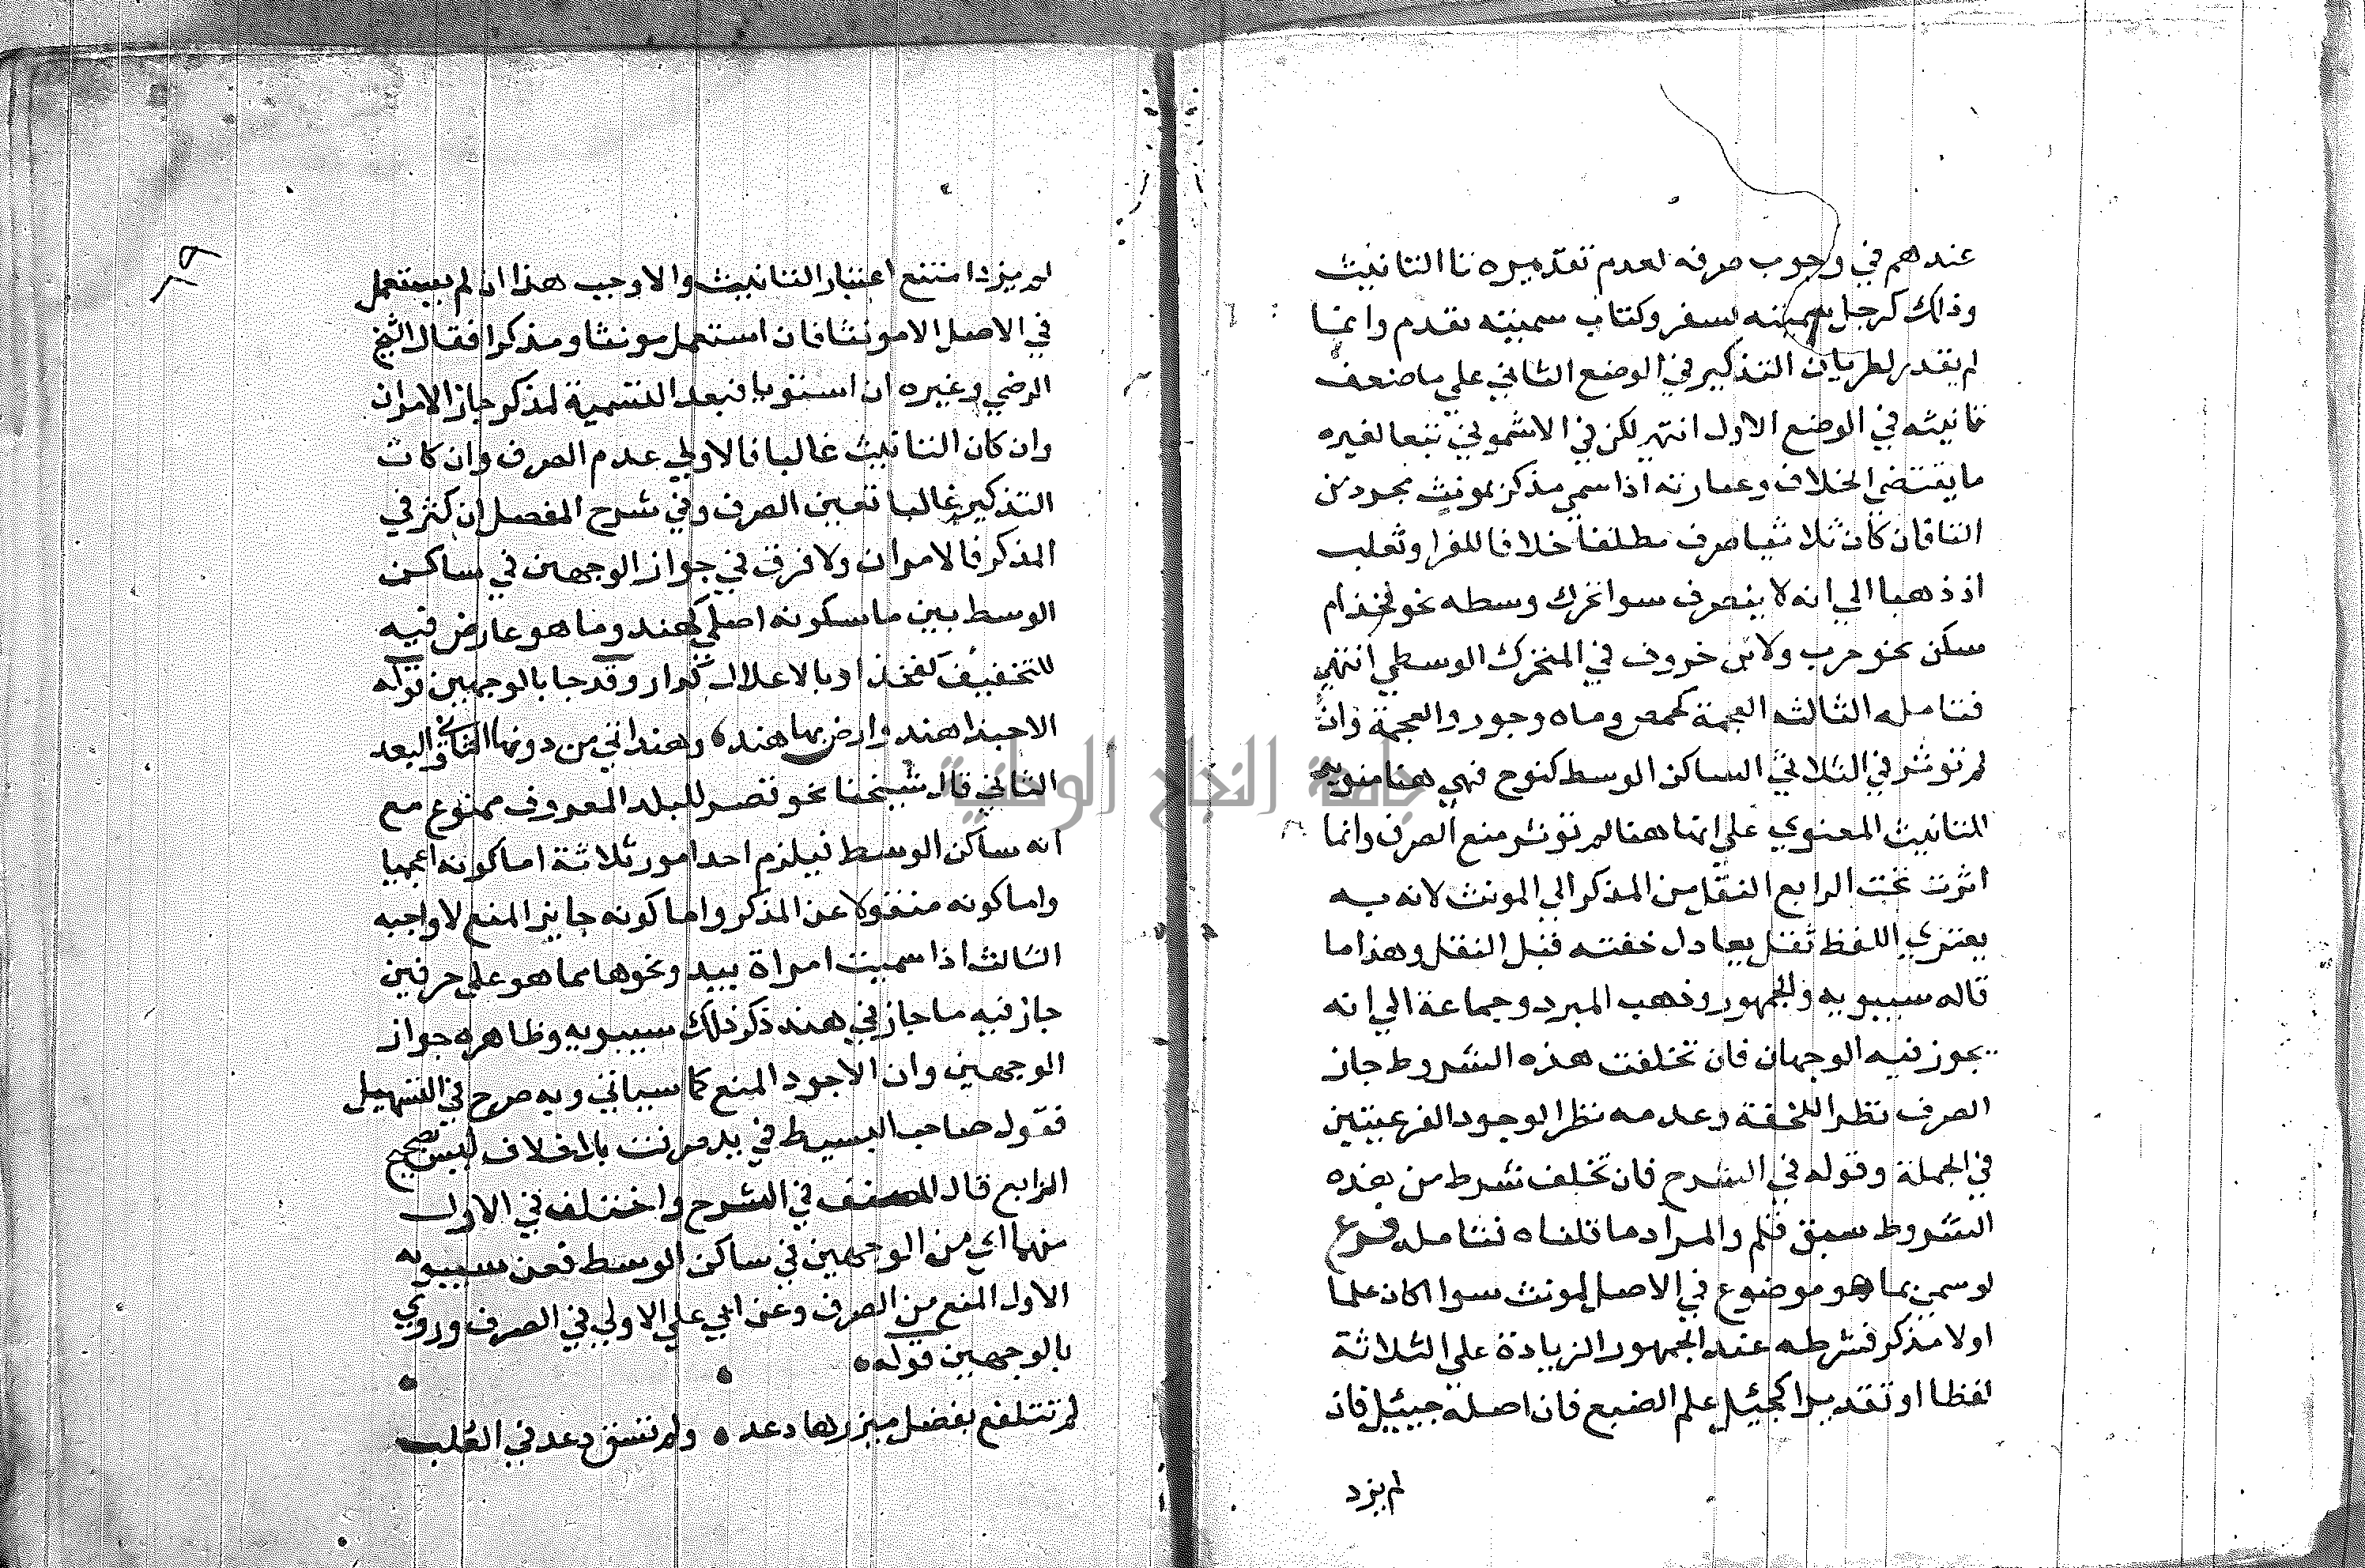 عندهم في وجوب صرفه لعدم تقديره تا التانيث
وذلك كرجل سميته بسفر وكتاب سميته بقدم وانما
لم يقدر لطريان التذكير في الوضع الثاني علي ما ضعف
تانيثه في الوضع الاول انتهي لكن في الاشموني تبعا لغيره
ما يقتضي الخلاف وعبارته اذا سمي مذكر بمونث مجرد من
التا فان كان ثلاثيا صرف مطلقا خلافا للفرا وثعلب
اذ ذهبا الي انه لا ينصرف سوا تحرك وسطه نحو فخذ ام
سكن نحو حرب ولابن خروف في المتحرك الوسطي انتهي
فتامله الثالثه العجمة كحمص وماه وجور والعجمة وان
لم توثر في الثلاثي الساكن الوسط كنوح فهي هنا مقويه
للتانيث المعنوي علي انها هنا لم توثر منع الصرف وانما
اثرت تحتم الرابع النقل من المذكر الي المونث لانه به
يعتري اللفظ ثقل يعادل خفته قبل النقل وهذا ما
قاله سيبويه والجمهور وذهب المبرد وجماعة الي انه
يجوز فيه الوجهان فان تخلفت هذه الشروط جاز
الصرف نظرا للخفة وعدمه نظرا لوجود الفرعيتين
في الجملة وقوله في الشرح فان تخلف شرط من بهذه
الشروط سبق قلم والمراد ما قلناه فتامله فرع
لو سمي بما هو موضوع في الاصل لمونث سوا اكان علما
اولا مذكر فشرطه عند الجمهور الزيادة علي الثلاثة
لفظا او تقديرا كجيئل علم الضبع فان اصله جيئيل فان
لم يزد
٨٩
لم يزد امتنع اعتبار التانيث والا وجب هذا ان لم يستعمل
في الاصل الا مونثا فان استعمل مونثا ومذكرا فقال الشيخ
الرضي وغيره ان استويا فبعد التسمية لمذكر جاز الامران
وان كان التانيث غالبا فالاولي عدم الصرف وان كان
التذكير غالبا تعين الصرف وفي شرح المفصل ان كثر في
المذكر فالامران ولا فرق في جواز الوجهين في ساكن
الوسط بين ما سكونه اصلي كهند وما هو عارض فيه
للتخفيف كفخذ او بالاعلال كدار وقد جا بالوجهين قوله
الا حبذا هند وارض بها هند ه وهند اتي من دونها الناي والبعد
الثاني قال شيخنا نحو قصر للبلد المعروف ممنوع مع
انه ساكن الوسط فيلزم احد امور ثلاثة اما كونه اعجميا
واما كونه منقولا عن المذكر واما كونه جايز المنع لا واجبه
الثالث اذا سميت امراة بيد ونحوها مما هو علي حرفين
جاز فيه ما جاز في هند ذكر ذلك سيبويه وظاهره جواز
الوجهين وان الاجود المنع كما سياتي وبه صرح في التسهيل
فقول صاحب البسيط في يد صرفت بلا خلاف ليس بصحيح
الرابع قال المصنف في الشرح واختلف في الاول
منهما اي من الوجهين في ساكن الوسط فعن سيبويه
الاول المنع من الصرف وعن ابي علي الاولي في الصرف وروي
بالوجهين قوله ه
لم تتلفع بفضل ميزرها دعد ه ولم تسق دعد في العلب
جامعة النجاح الوطنية